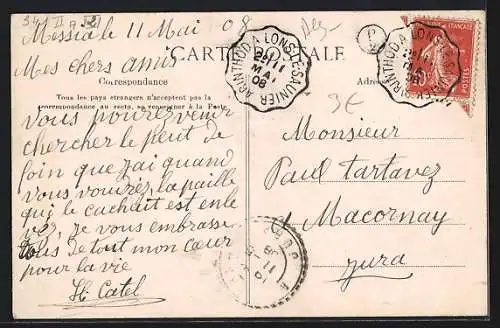 Messia le 11 Mai 08
CARTE POSTALE
Mes chers amis
Correspondance
Tous les pays étrangers n'acceptent pas la
correspondance au recto, se renseigner à la Poste.
Vous pouvez venir
chercher le peut de
foin que jai quand
vous voudrez la paille
qui le cachait est enle
vé, je vous embrasse
tous de tout mon cœur
pour la vie
H. Catel
ARINTHOD A LONS-LE-SAUNIER
MAI
08
ARINTHOD A LONS-LE-SAUNIER
MAI
08
3€
Monsieur
Paul Tartavez
Macornay
Jura